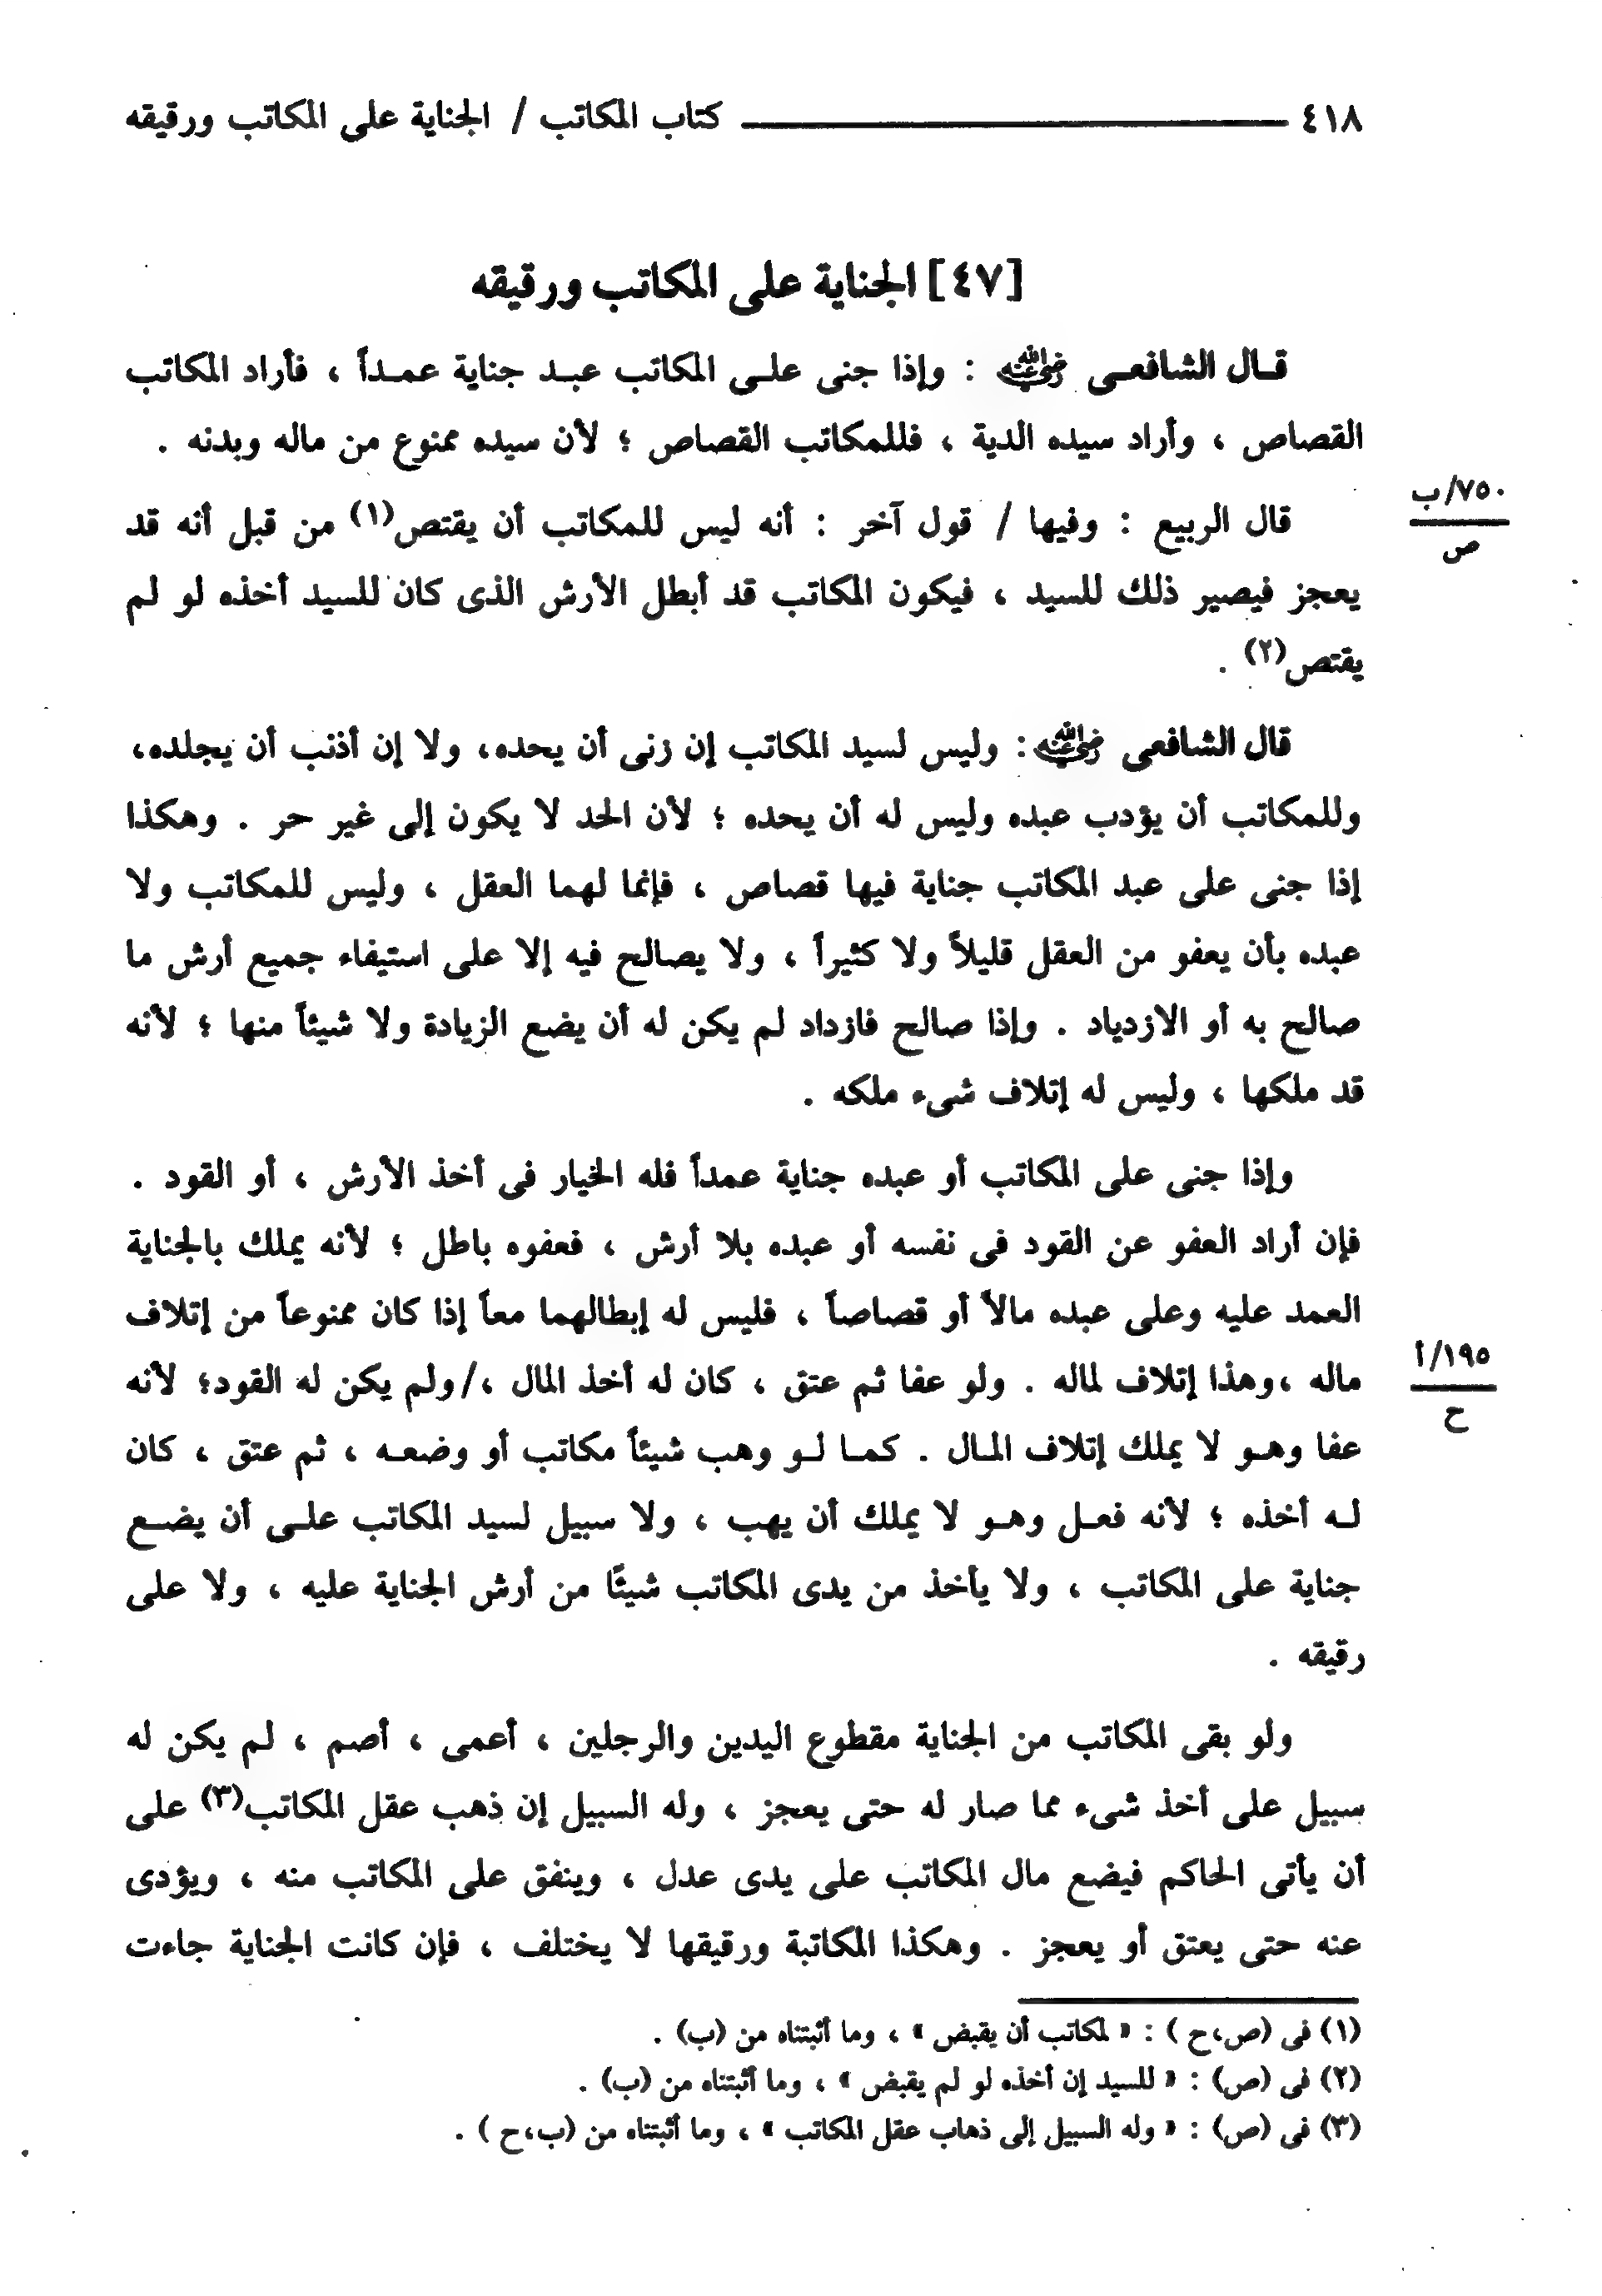 ٤١٨ كتاب المكاتب / الجناية على المكاتب ورقيقه
[٤٧] الجناية على المكاتب ورقيقه
قـال الشافعـى رضي الله عنه : وإذا جنى علـى المكاتب عبـد جناية عمـداً ، فأراد المكاتب
القصاص ، وأراد سيده الدية ، فللمكاتب القصاص ؛ لأن سيده ممنوع من ماله وبدنه .
٧٥٠/ب
ص
قال الربيع : وفيها / قول آخر : أنه ليس للمكاتب أن يقتص(١) من قبل أنه قد
يعجز فيصير ذلك للسيد ، فيكون المكاتب قد أبطل الأرش الذى كان للسيد أخذه لو لم
يقتص(٢) .
قال الشافعى رضي الله عنه : وليس لسيد المكاتب إن زنى أن يحده، ولا إن أذنب أن يجلده،
وللمكاتب أن يؤدب عبده وليس له أن يحده ؛ لأن الحد لا يكون إلى غير حر . وهكذا
إذا جنى على عبد المكاتب جناية فيها قصاص ، فإنما لهما العقل ، وليس للمكاتب ولا
عبده بأن يعفو من العقل قليلاً ولا كثيراً ، ولا يصالح فيه إلا على استيفاء جميع أرش ما
صالح به أو الازدياد . وإذا صالح فازداد لم يكن له أن يضع الزيادة ولا شيئاً منها ؛ لأنه
قد ملكها ، وليس له إتلاف شىء ملكه .
وإذا جنى على المكاتب أو عبده جناية عمداً فله الخيار فى أخذ الأرش ، أو القود .
فإن أراد العفو عن القود فى نفسه أو عبده بلا أرش ، فعفوه باطل ؛ لأنه يملك بالجناية
العمد عليه وعلى عبده مالاً أو قصاصاً ، فليس له إبطالهما معاً إذا كان ممنوعاً من إتلاف
١٩٥/أ
ح
ماله ،وهذا إتلاف لماله . ولو عفا ثم عتق ، كان له أخذ المال ،/ولم يكن له القود؛ لأنه
عفا وهـو لا يملك إتلاف المـال . كمـا لـو وهب شيئاً مكاتب أو وضعـه ، ثم عتق ، كان
لـه أخذه ؛ لأنه فعـل وهـو لا يملك أن يهب ، ولا سبيل لسيد المكاتب علـى أن يضـع
جناية على المكاتب ، ولا يأخذ من يدى المكاتب شيئًا من أرش الجناية عليه ، ولا على
رقيقه .
ولو بقى المكاتب من الجناية مقطوع اليدين والرجلين ، أعمى ، أصم ، لم يكن له
سبيل على أخذ شىء مما صار له حتى يعجز ، وله السبيل إن ذهب عقل المكاتب(٣) على
أن يأتى الحاكم فيضع مال المكاتب على يدى عدل ، وينفق على المكاتب منه ، ويؤدى
عنه حتى يعتق أو يعجز . وهكذا المكاتبة ورقيقها لا يختلف ، فإن كانت الجناية جاءت
(١) فى (ص،ح ) : « لمكاتب أن يقبض » ، وما أثبتناه من (ب) .
(٢) فى (ص) : « للسيد إن أخذه لو لم يقبض » ، وما أثبتناه من (ب) .
(٣) فى (ص) : « وله السبيل إلى ذهاب عقل المكاتب » ، وما أثبتناه من (ب،ح ) .